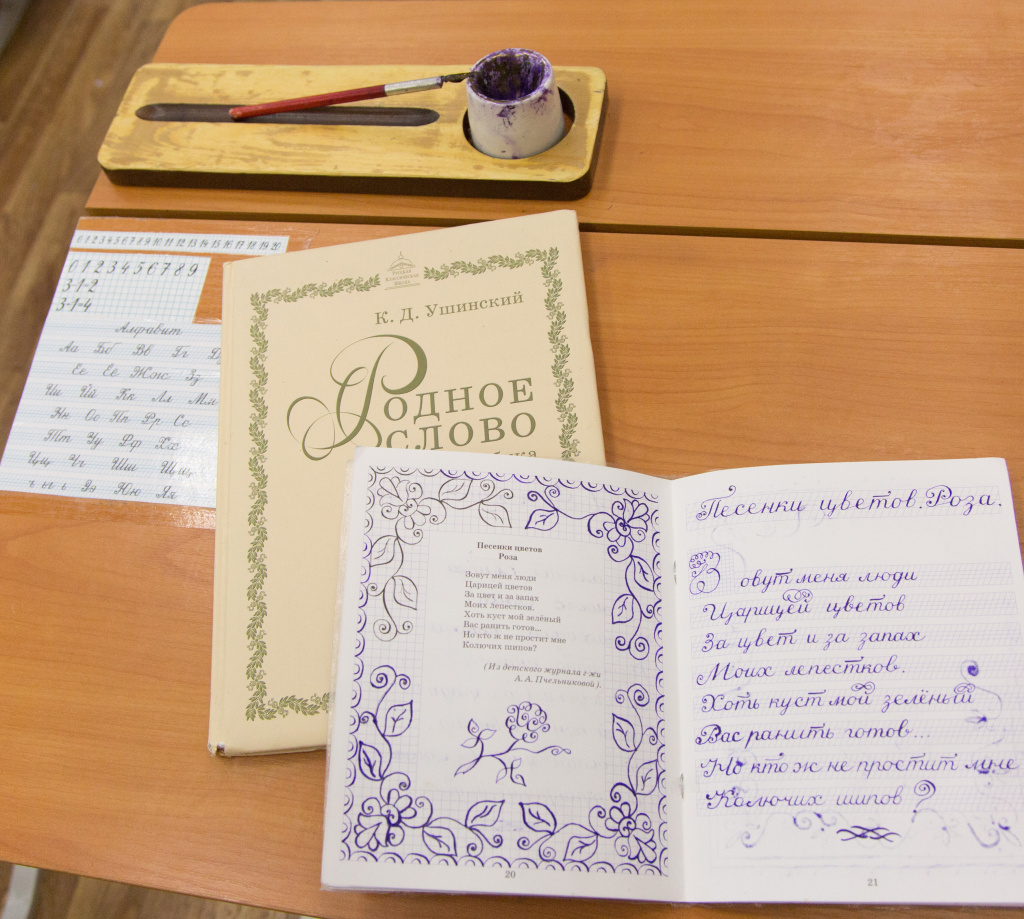 0 1 2 3 4 5 6 7 8 9 10 11 12 13 14 15 16 17 18 19 20
0 1 2 3 4 5 6 7 8 9
3-1-2
3-1-4
Алфавит
Аа Бб Вв Гг
Ее Ёё Жж Зз
Ии Йй Кк Лл Мм
Нн Оо Пп Рр Сс
Тт Уу Фф Хх
Цц Чч Шш Щщ
ъ ы ь Ээ Юю Яя
РУССКАЯ
КЛАССИЧЕСКАЯ
ШКОЛА
К. Д. Ушинский
РОДНОЕ
СЛОВО
Песенки цветов
Роза
Зовут меня люди
Царицей цветов
За цвет и за запах
Моих лепестков.
Хоть куст мой зелёный
Вас ранить готов...
Но кто ж не простит мне
Колючих шипов?
(Из детского журнала г-жи
А. А. Пчельниковой).
20
Песенки цветов. Роза.
Зовут меня люди
Царицей цветов
За цвет и за запах
Моих лепестков.
Хоть куст мой зелёный
Вас ранить готов...
Но кто ж не простит мне
Колючих шипов?
21